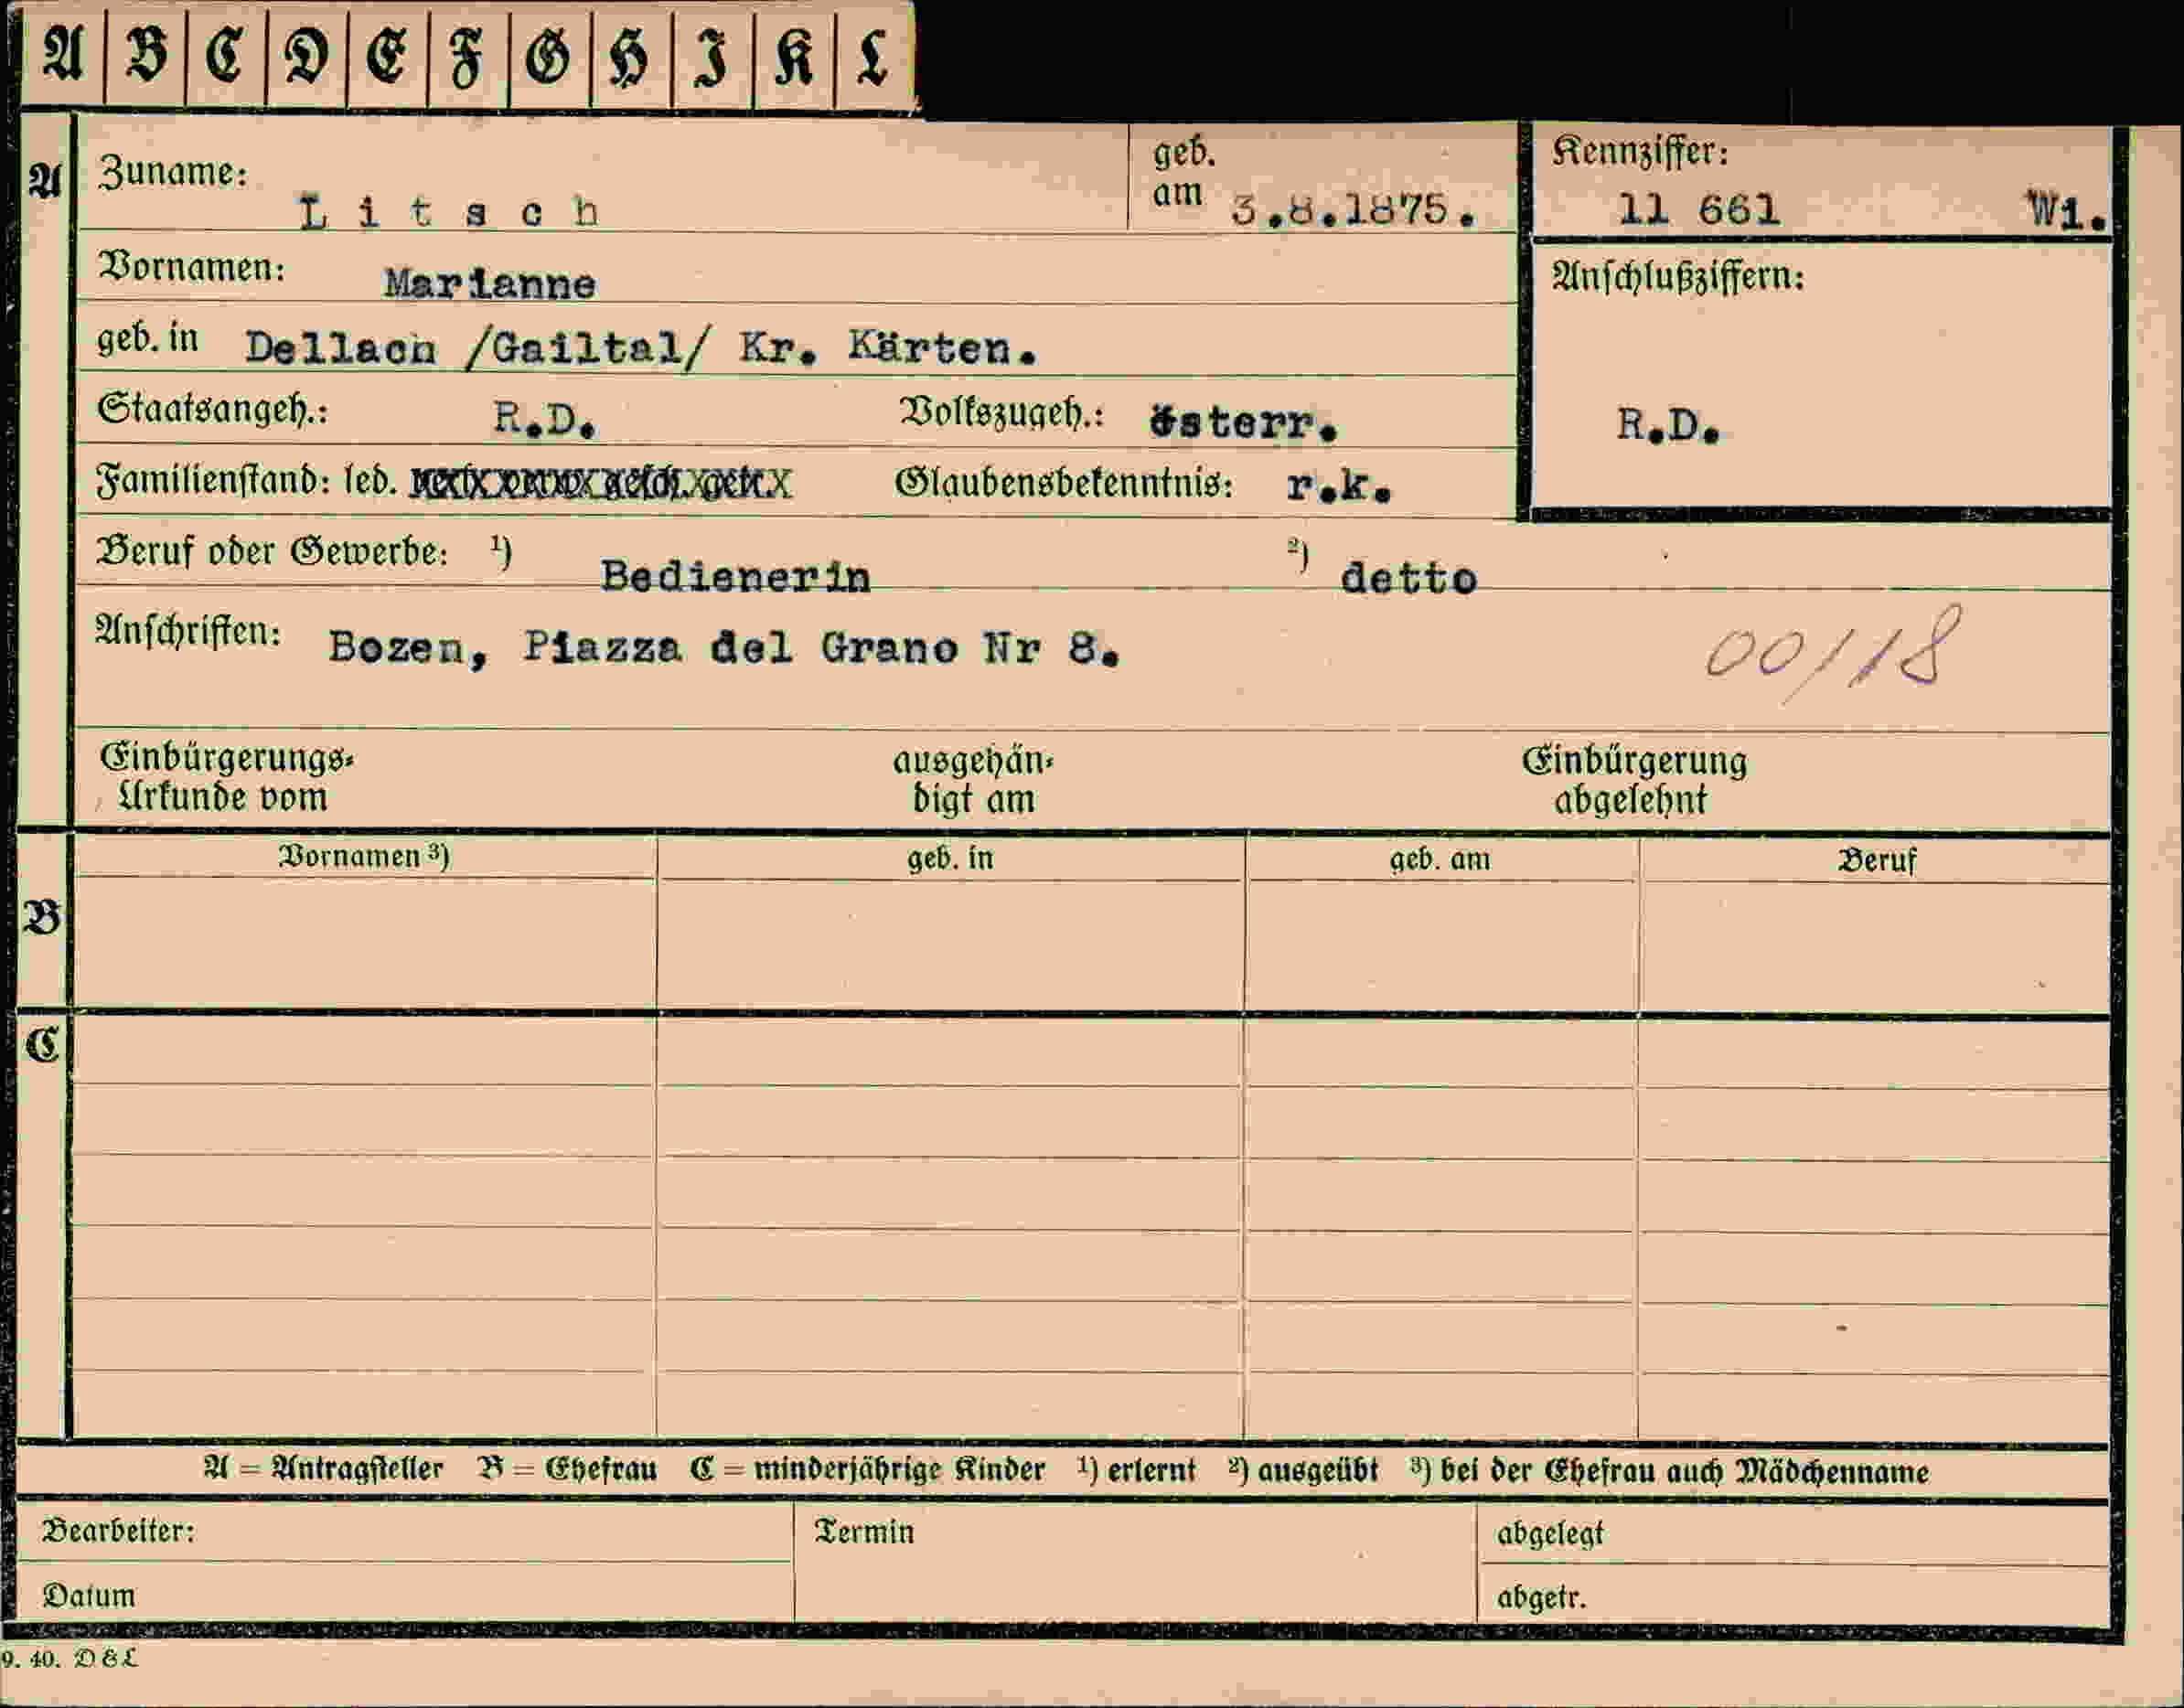 A B C D E F G H I K L
A
Zuname: Litsch
geb. am 3.8.1875.
Kennziffer: 11 661 Wi.
Vornamen: Marianne
Anschlußziffern:
geb. in Dellach /Gailtal/ Kr. Kärten.
Staatsangeh.: R.D. Volkszugeh.: österr.
R.D.
Familienstand: led. Glaubensbekenntnis: r.k.
Beruf oder Gewerbe: ¹) Bedienerin ²) detto
Anschriften: Bozen, Piazza del Grano Nr 8.
00/18
Einbürgerungs-Urkunde vom
ausgehändigt am
Einbürgerung abgelehnt
B
Vornamen ³) geb. in geb. am Beruf
C
A = Antragsteller B = Ehefrau C = minderjährige Kinder ¹) erlernt ²) ausgeübt ³) bei der Ehefrau auch Mädchenname
Bearbeiter: Termin abgelegt
Datum abgetr.
9. 40. D & L